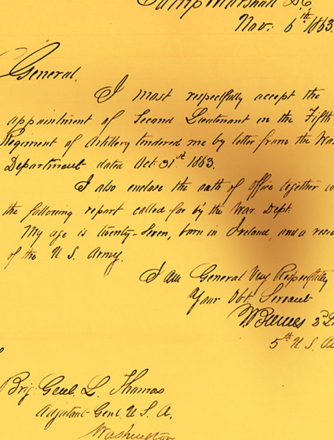 Camp Marshall D.C.
Nov. 6th 1863.
General.
I most respectfully accept the
appointment of Second Lieutenant in the Fifth
Regiment of Artillery tendered me by letter from the War
Department dated Oct. 31st 1863.
I also enclose the oath of office together
the following report called for by the War Dept.
My age is twenty-seven, born in Ireland, and a
of the U. S. Army.
I am General Very Respectfully
Your Obt. Servant
2d
5th U. S.
Brig. Genl. L. Thomas
Adjutant Genl. U. S. A.
Washington